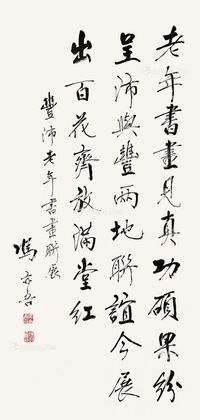 老年書畫見真功碩果紛
呈沛與豐兩地聯誼今展
出百花齊放滿堂紅
豐沛老年書畫聯展
馮亦吾